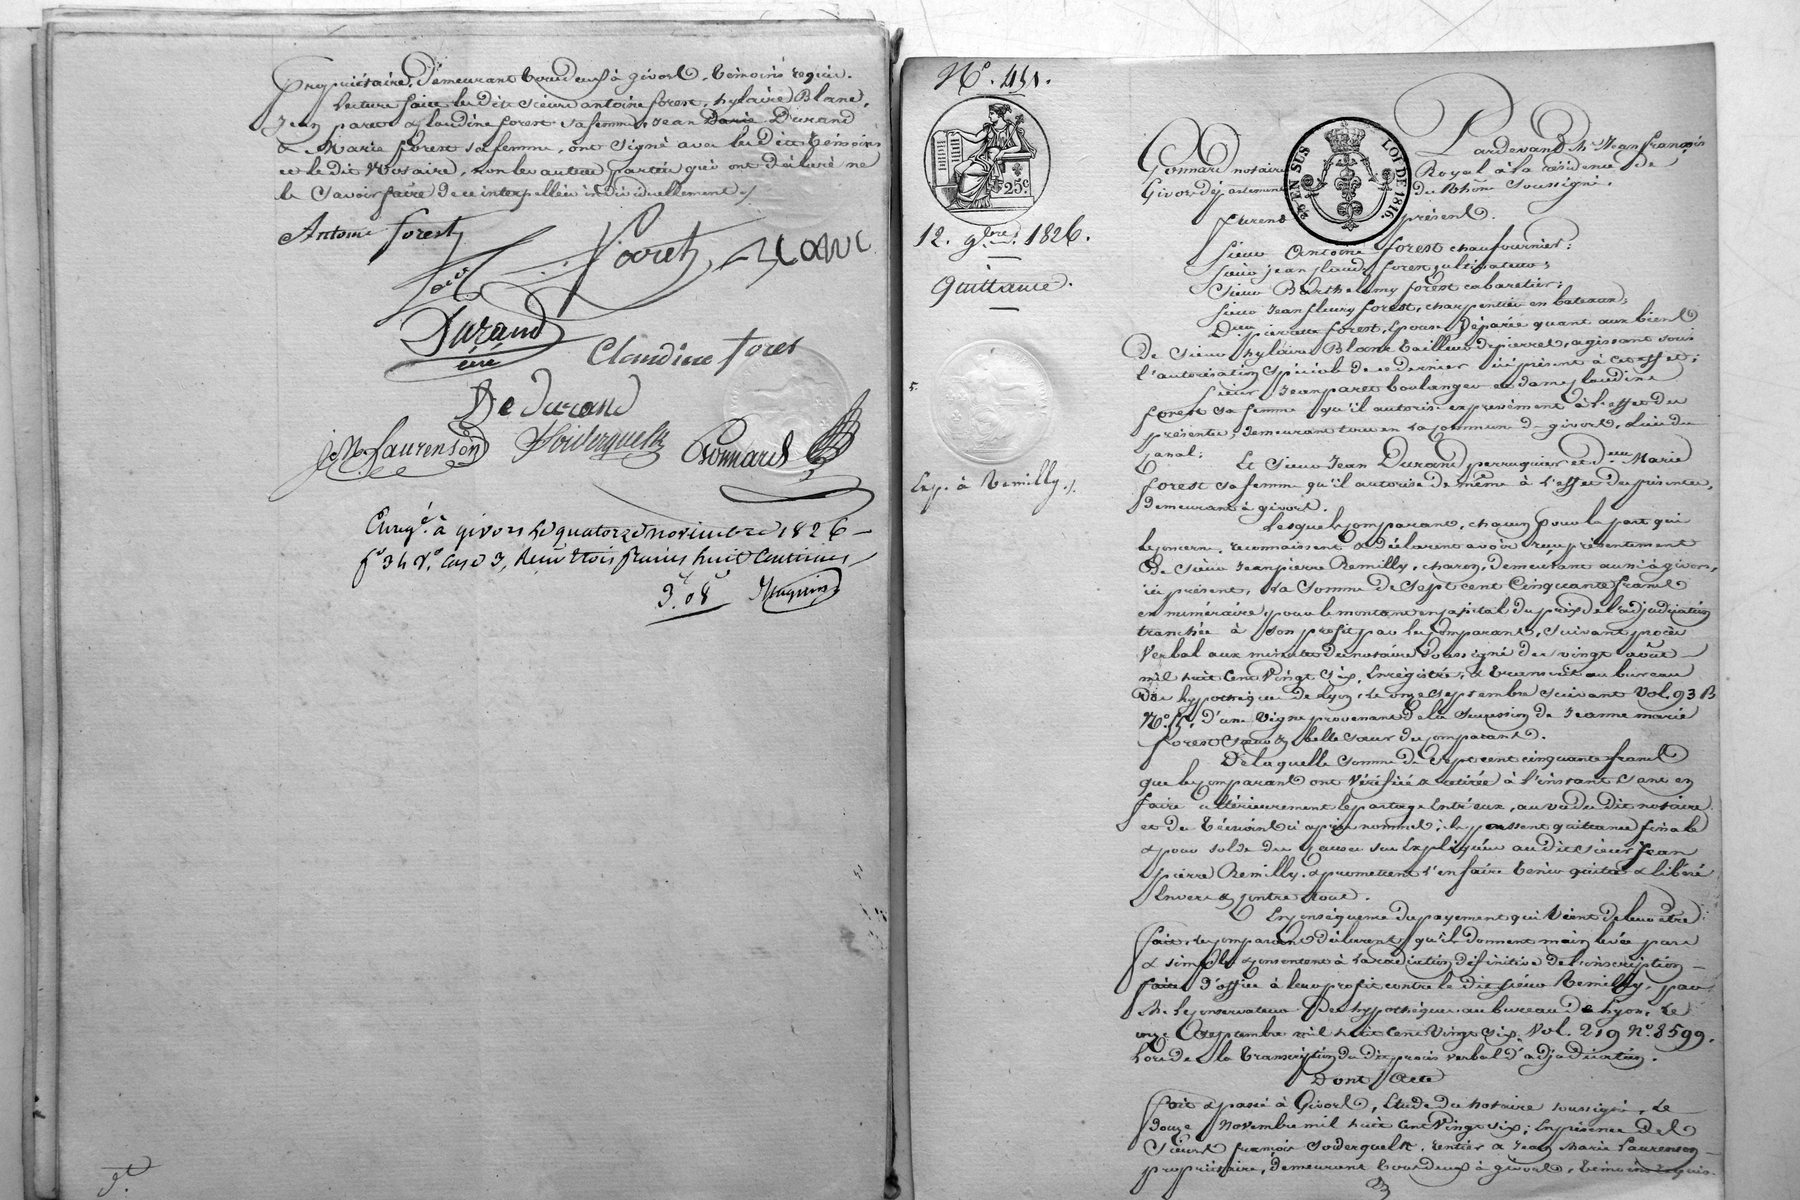 propriétaire, demeurant tous deux à givors, témoins requis.
Lecture faite les dits sieurs antoine forest, hylaire Blanc,
Jean paret & Claudine forest sa femme, Jean Marie Durand
& Marie forest sa femme, ont signé avec les dits témoins
et le dit Notaire, non les autres parties qui ont déclaré ne
le savoir faire de ce interpellés individuellement ./.
Antoine forest
Poret Blanc
Durand
Claudine fores
De Durand
J M Laurenson Souderquelk Gonnard
Enregé. à givors le quatorze novembre 1826 —
fo 34 Vo. case 3, Reçu trois francs huit centimes —
3f 08
N°. 451.
25c
12. 9bre. 1826.
Quittance.
Exp. à Remilly ./.
25 EN SUS LOI DE 1816.
Pardevant Me Jean françois
Gonnard notaire Royal à la résidence de
Givors département du Rhône soussigné,
furent présents.
Sieur Antoine forest chaufournier;
Sieur jean claude forest cultivateur;
Sieur Barthelemy forest cabaretier;
Sieur Jean fleury forest, charpentier en bateaux;
Dame pierrette forest, épouse séparée quant aux biens
De Sieur hylaire Blanc tailleur de pierres, agissant sous
l'autorisation spéciale de ce dernier ici présent à cet effet;
Sieur Jean paret boulanger et dame claudine
forest sa femme qu'il autorise expressément à l'effet des
présentes, demeurant tous en la commune de givors, lieu du
canal;
Et Sieur Jean Durand perruquier et dame Marie
forest sa femme qu'il autorise de même à l'effet des présentes,
demeurant à givors.
Lesquels comparants, chacun pour la part qui
les concerne, reconnaissent & déclarent avoir reçu présentement
De Sieur Jean pierre Remilly, charon, demeurant aussi à givors,
ici présent, la somme de sept cent cinquante francs
en numéraire, pour le montant en capital du prix de l'adjudication
tranchée à son profit par les comparants, suivant procès
Verbal aux minutes du notaire soussigné du vingt août —
mil huit cent Vingt six, Enregistré, & transcrit au bureau
Des hypothèques de Lyon, le onze septembre suivant Vol. 93 B
N°. d'une Vigne provenant de la succession de Jeanne marie
forest sœur & belle sœur des comparants.
De laquelle somme de sept cent cinquante francs
que les comparants ont vérifiée & retirée à l'instant sauf en
faire ultérieurement le partage entr'eux, au vu du dit notaire
et des témoins ci après nommés; ils passent quittance finale
& pour solde des causes sus expliquées au dit sieur Jean
pierre Remilly, & promettent l'en faire tenir quitte & libéré
Envers & contre tous.
En conséquence du payement qui vient de leur être
fait, les comparants déclarent qu'ils donnent main levée pure
& simple & consentent à la radiation définitive de l'inscription —
faite d'office à leur profit contre le dit sieur Remilly, par
M. Le conservateur des hypothèques au bureau de Lyon, le
onze septembre mil huit cent Vingt six, Vol. 219 N° 8599.
Lors de la transcription du dit procès verbal d'adjudication.
Dont Acte
fait & passé à Givors, Étude du notaire soussigné, le
douze Novembre mil huit cent Vingt six; En présence des
Sieurs françois Souderquelk, rentier & Jean Marie Laurenson —
propriétaire, demeurant tous deux à givors, témoins requis.